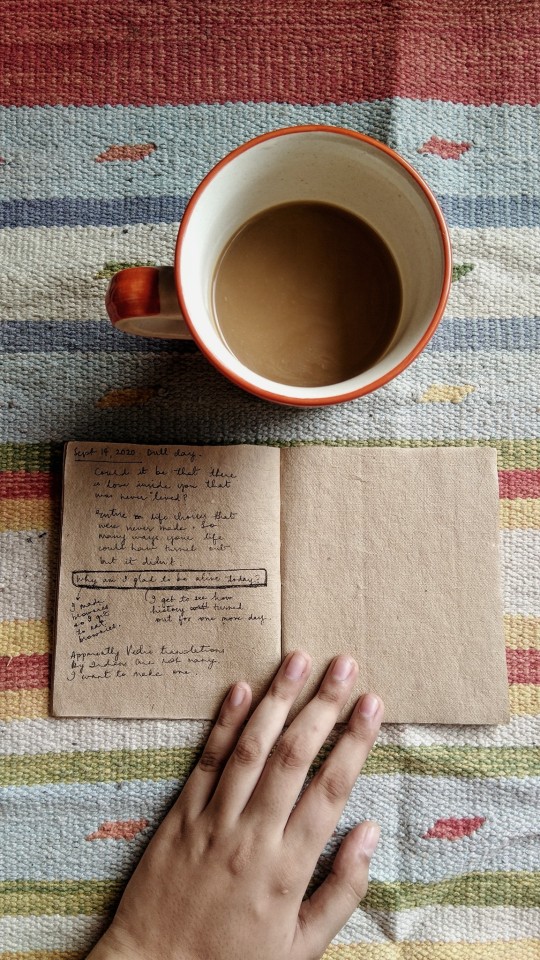 Sept 14, 2020. Dull day.
Could it be that there
is love inside you that
was never lived?
Entire life choices that
were never made. So
many ways your life
could have turned out
but it didn't.
Why am I glad to be alive today?
I made
brownies
so I get
to eat
brownies.
I get to see how
history turned
out for one more day.
Apparently Vedic translations
by Indians are not many
I want to make one.